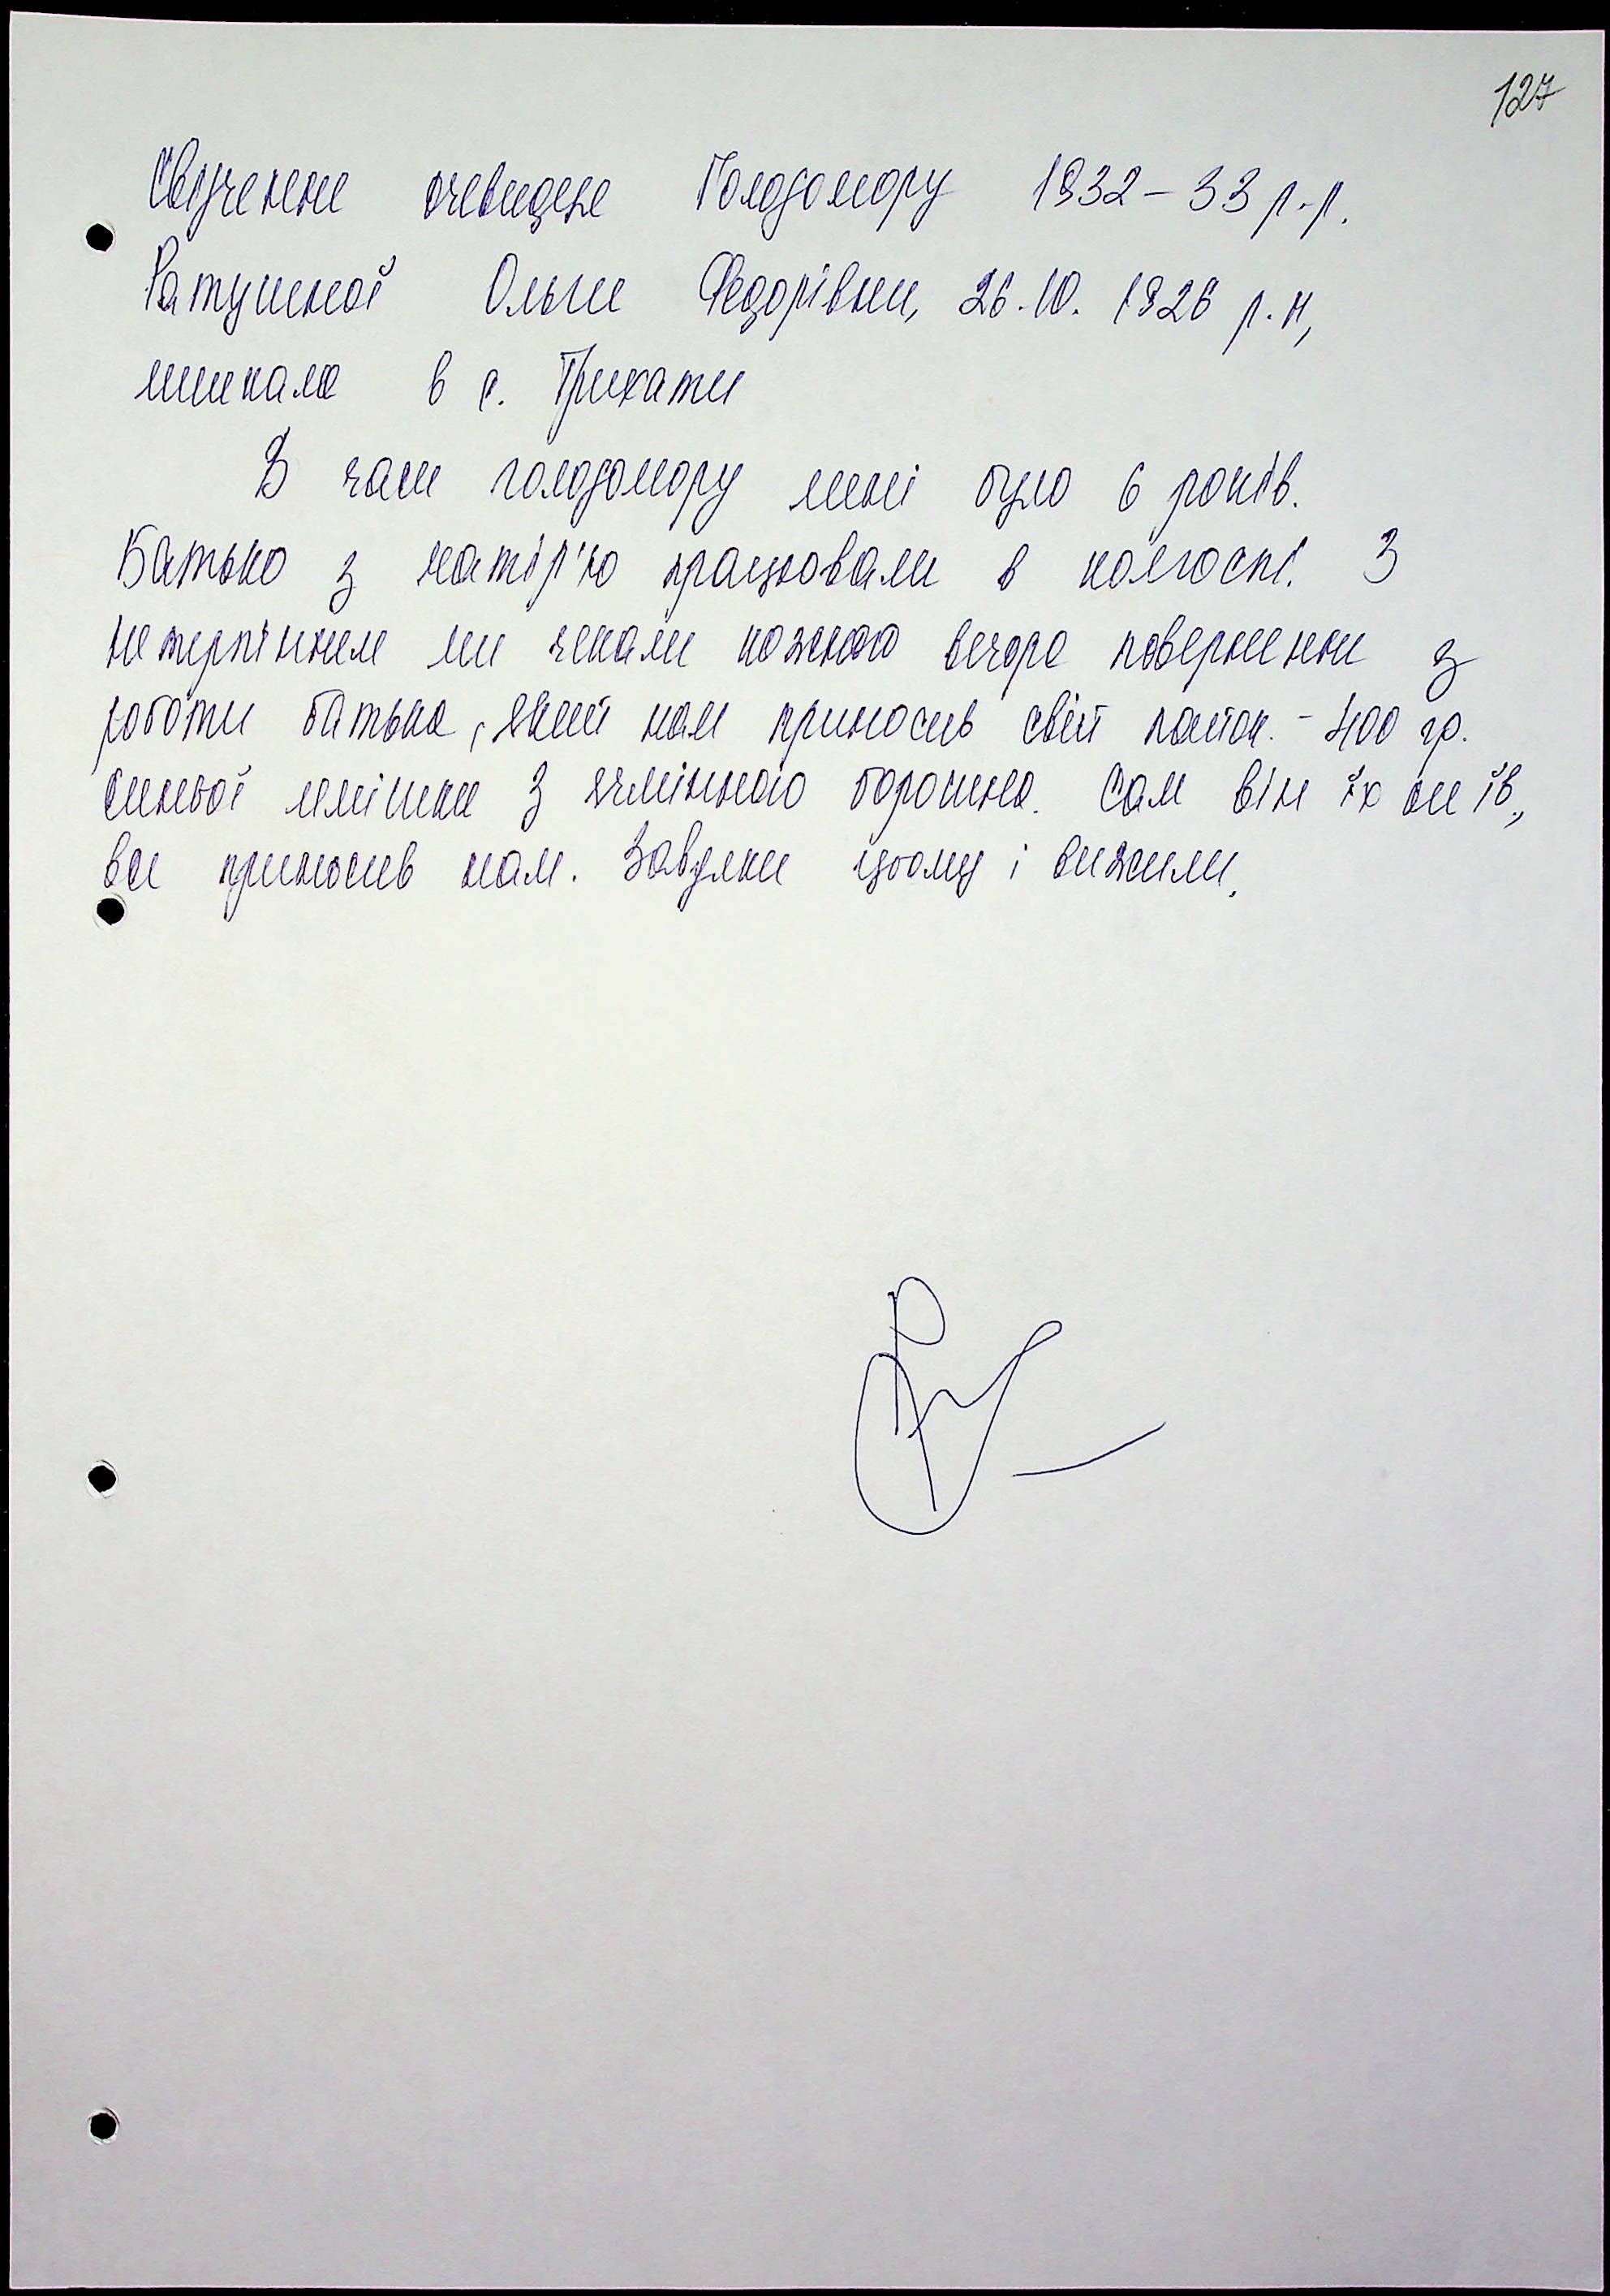 127
Свідчення очевидця Голодомору 1932-33 р.р.
Ратушної Ольги Федорівни, 26.10.1926 р.н,
мешкала в с. Трихати
В часи голодомору мені було 6 років.
Батько з матір'ю працювали в колгоспі. З
нетерпінням ми чекали кожного вечора повернення з
роботи батька, який нам приносив свій пайок - 400 гр.
синьої ляпішки з ячмінного борошна. Сам він їх не їв,
все приносив нам. Завдяки цьому і вижили.